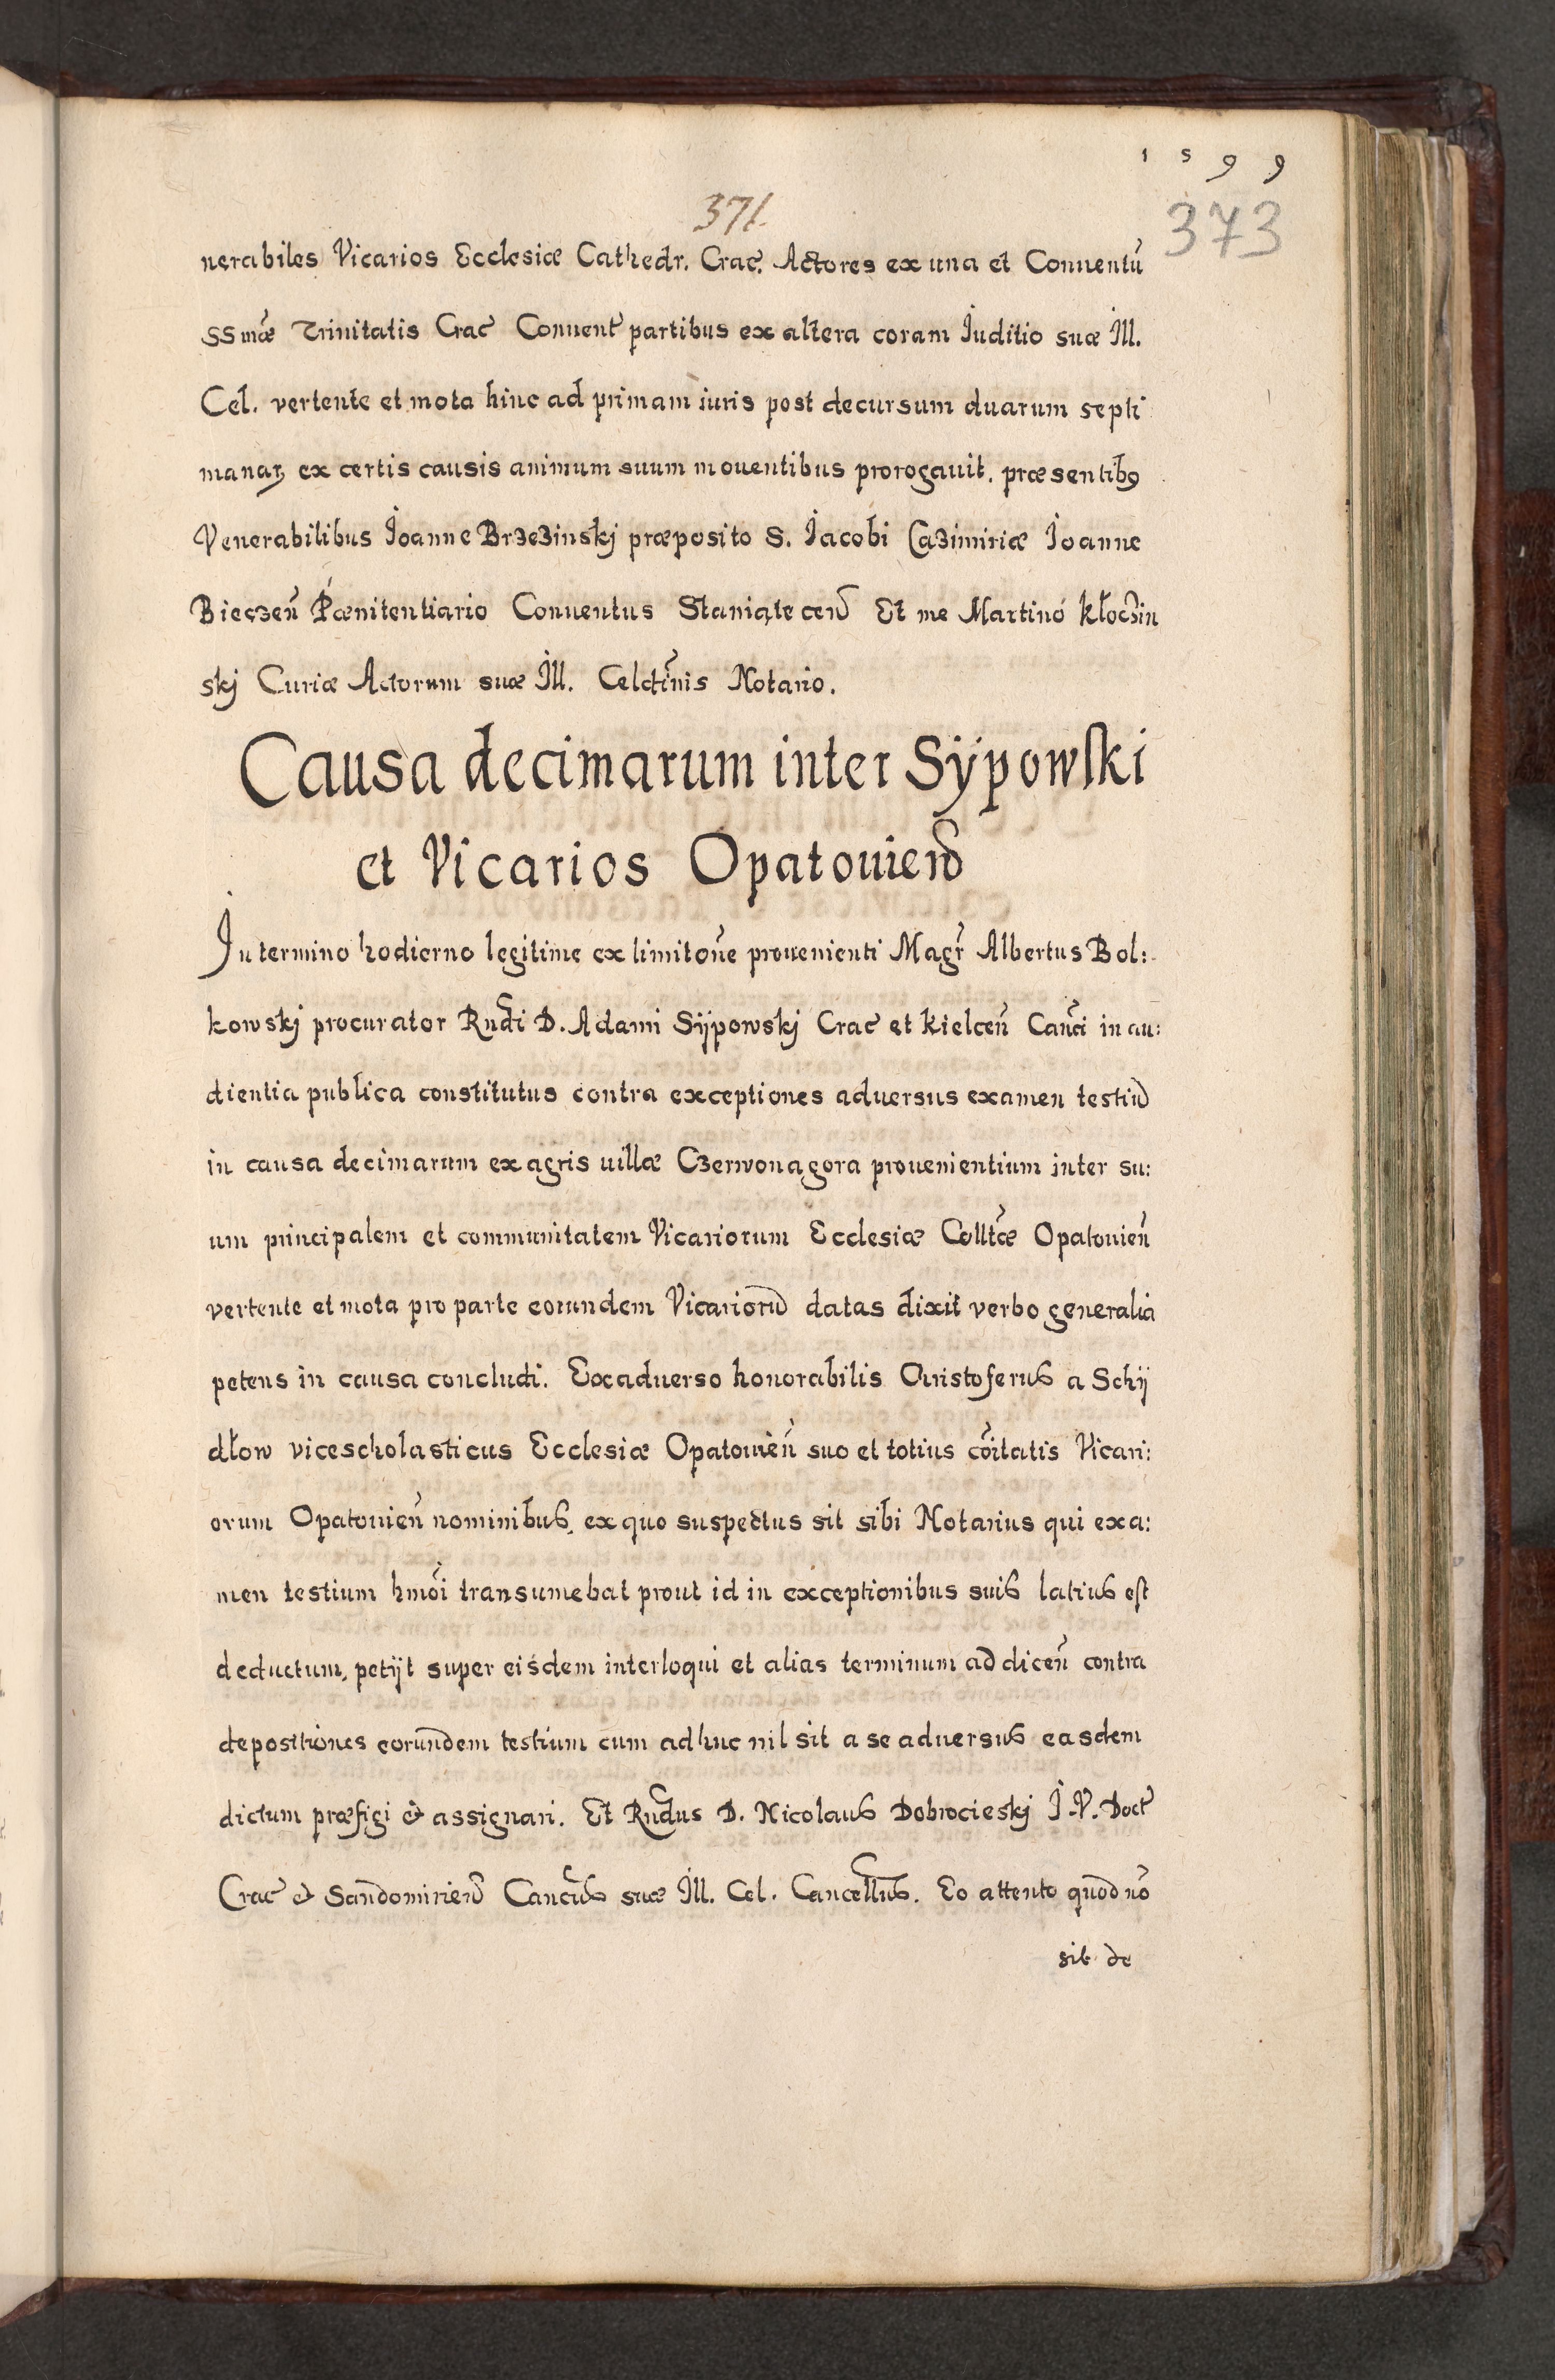 1599
371
373
nerabiles Vicarios Ecclesiæ Cathedr. Crac. Actores ex una et Conuentũ
SSmæ Trinitatis Crac Conuent partibus ex altera coram Iuditio suæ Ill.
Cel. vertente et mota hinc ad primam iuris post decursum duarum septi
manarꝫ ex certis causis animum suum mouentibus prorogauit. præsentibꝰ
Venerabilibus Ioanne Brzezinskj præposito S. Iacobi Cazimiriæ Ioanne
Bieczeñ Pœnitentiario Conuentus Staniąteceñ Et me Martino Kłoczin
skj Curiæ Actorum suæ Ill. Celctinis Notario.
Causa decimarum inter Sÿpowski
et Vicarios Opatouieñ
In termino hodierno legitime ex limitoñe prouenienti Magr Albertus Bol:
kowskj procurator Rndi D. Adami Sÿpowskj Crac et Kielceñ Canci in au:
dientia publica constitutus contra exceptiones aduersus examen testiũ
in causa decimarum ex agris uillæ Czerwonagora prouenientium inter su:
um principalem et communitatem Vicariorum Ecclesiæ Colltæ Opatouieñ
vertente et mota pro parte eorundem Vicariorũ datas dixit verbo generalia
petens in causa concludi. Ex aduerso honorabilis Christoferus a Schÿ
dłow vicescholasticus Ecclesiæ Opatouieñ suo et totius cõitatis Vicari:
orum Opatouieñ nominibus, ex quo suspectus sit sibi Notarius qui exa:
men testium hmõi transumebat prout id in exceptionibus suis latius est
deductum, petÿt super eisdem interloqui et alias terminum ad diceñ contra
depositiones eorundem testium cum adhuc nil sit a se aduersus easdem
dictum præfigi et assignari. Et Rndus D. Nicolaus Dobrocieskj I.V. Doct
Crac et Sandomirieñ Cancus suæ Ill. Cel. Cancellrius. Eo attento quod nõ
sit de